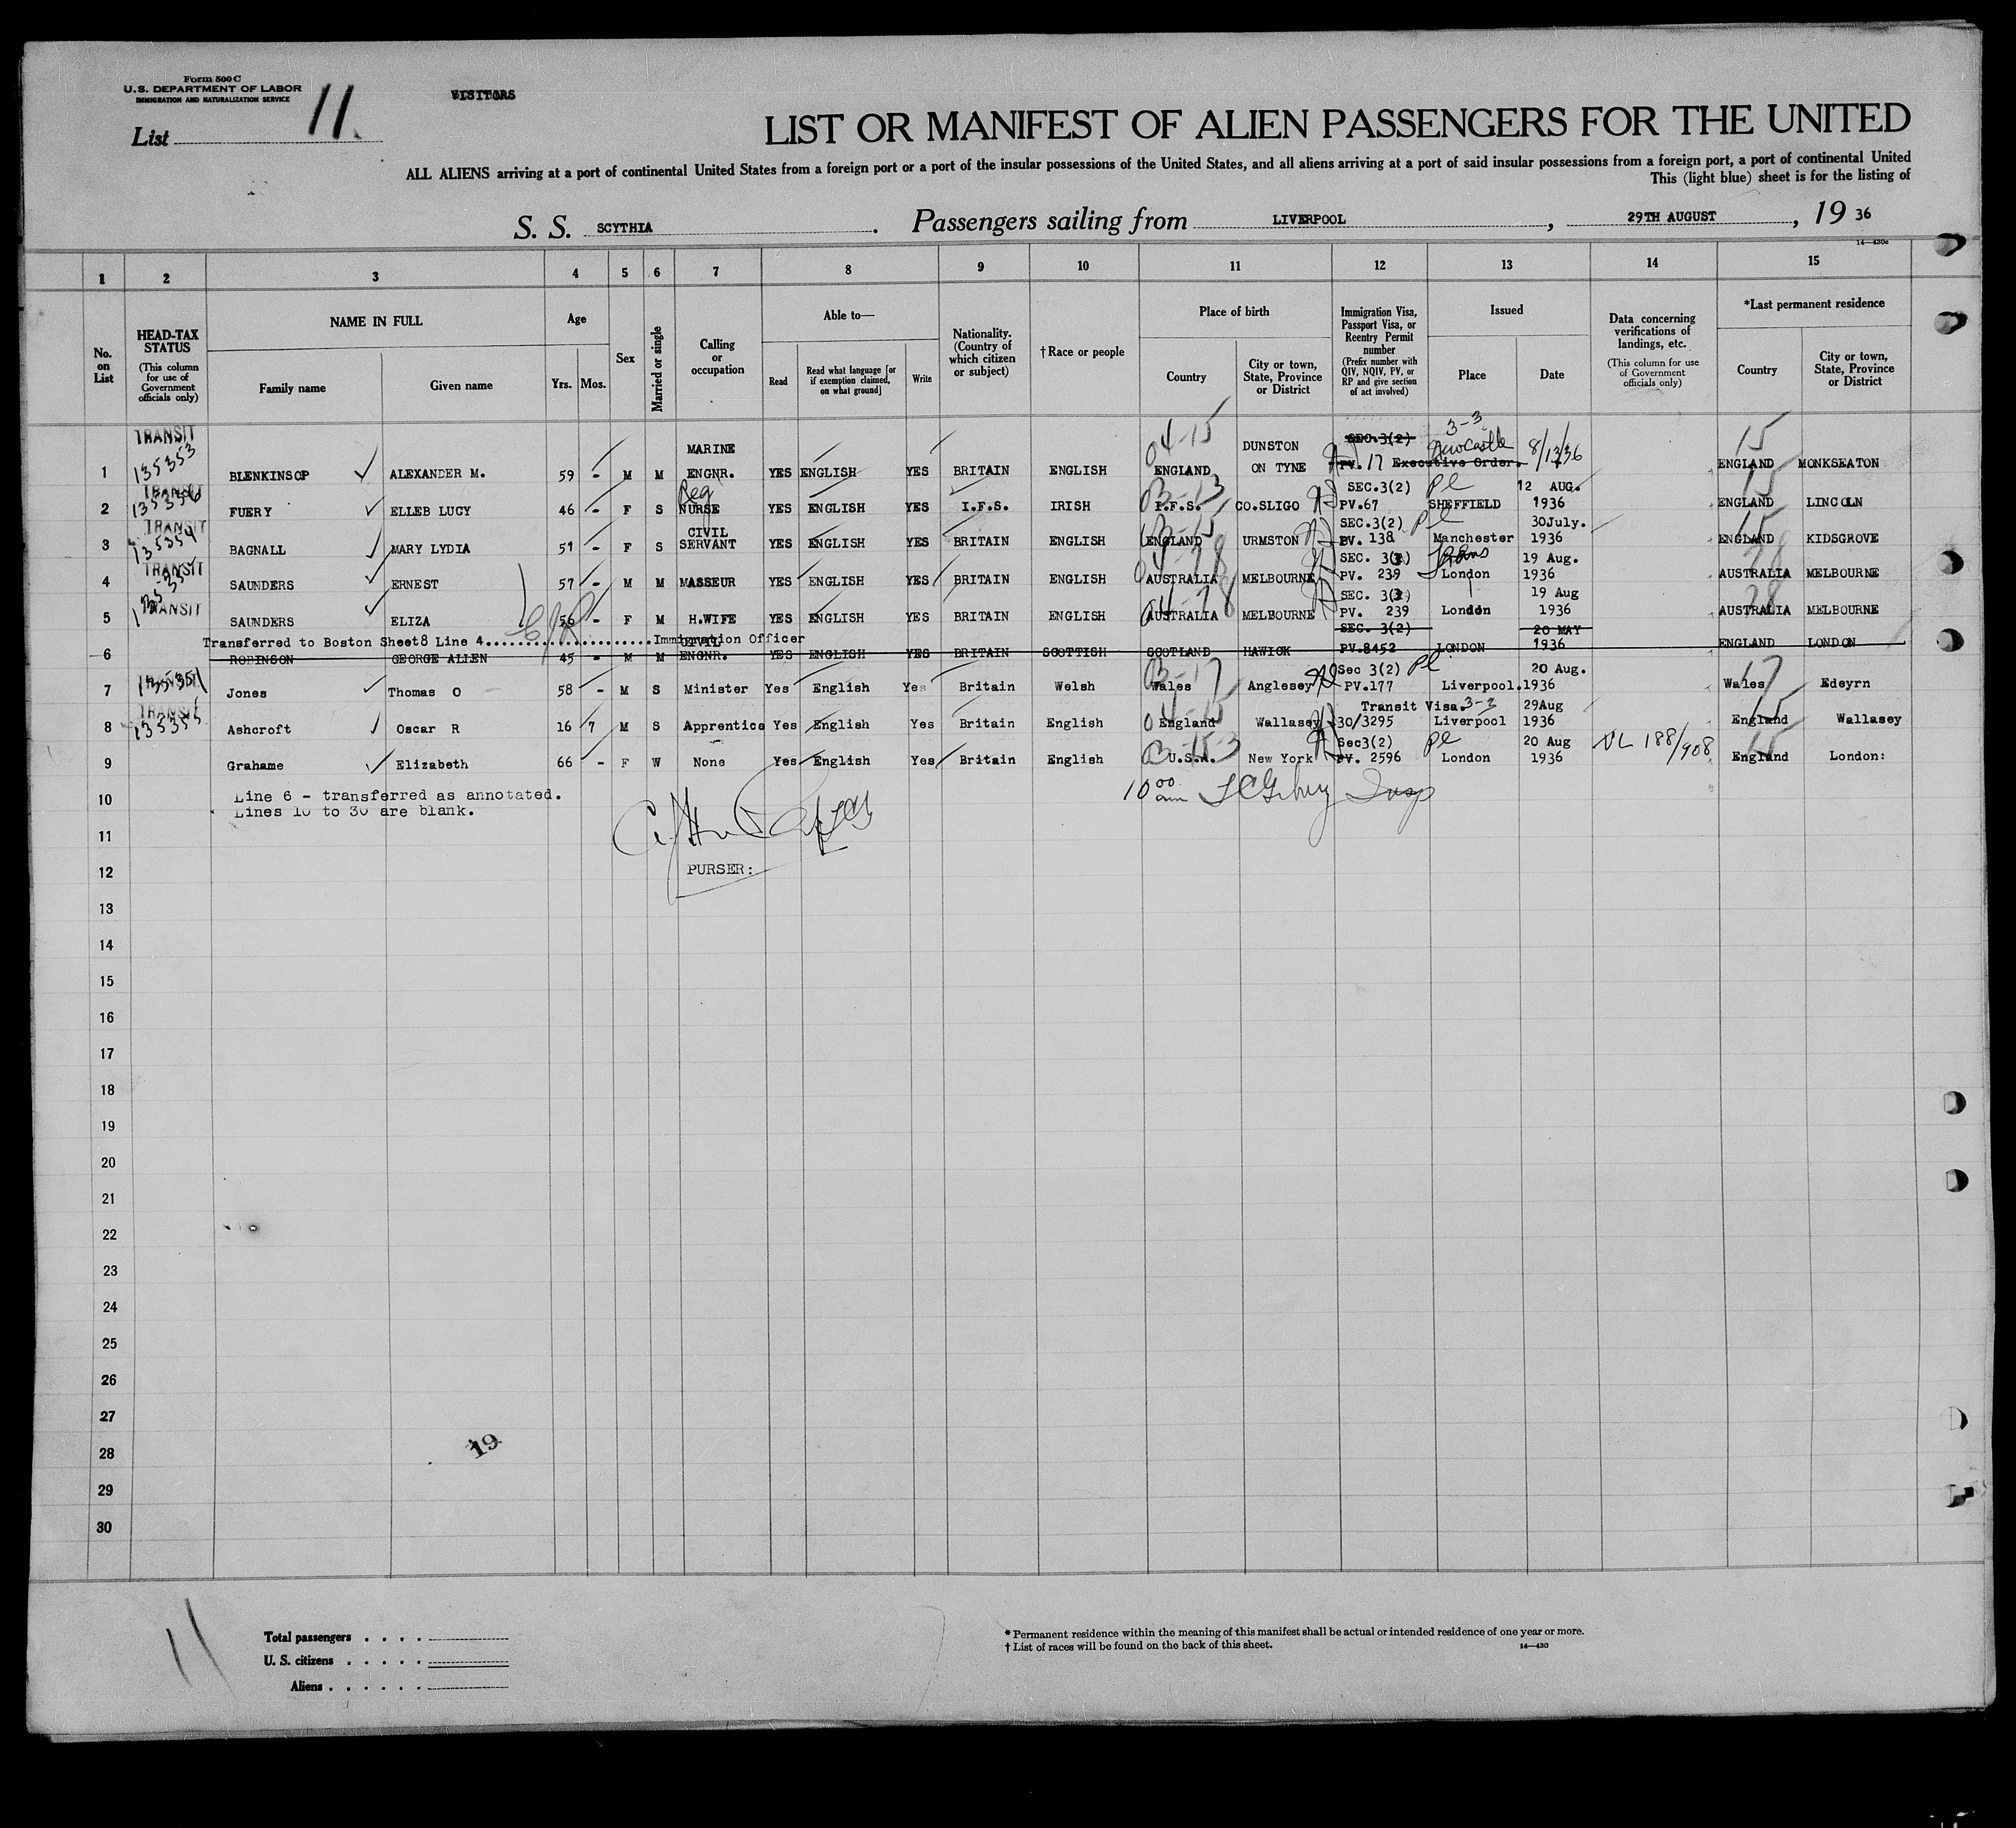 Form 500 C
U.S. DEPARTMENT OF LABOR
IMMIGRATION AND NATURALIZATION SERVICE
VISITORS
List 11
LIST OR MANIFEST OF ALIEN PASSENGERS FOR THE UNITED
ALL ALIENS arriving at a port of continental United States from a foreign port or a port of the insular possessions of the United States, and all aliens arriving at a port of said insular possessions from a foreign port, a port of continental United
This (light blue) sheet is for the listing of
S. S. SCYTHIA. Passengers sailing from LIVERPOOL, 29TH AUGUST, 19 36
14—430c
1 2 3 4 5 6 7 8 9 10 11 12 13 14 15
No. on List
HEAD-TAX STATUS (This column for use of Government officials only)
NAME IN FULL Family name Given name
Age Yrs. Mos.
Sex
Married or single
Calling or occupation
Able to— Read Read what language [or if exemption claimed, on what ground] Write
Nationality. (Country of which citizen or subject)
†Race or people
Place of birth Country City or town, State, Province or District
Immigration Visa, Passport Visa, or Reentry Permit number (Prefix number with QIV, NQIV, PV, or RP and give section of act involved)
Issued Place Date
Data concerning verifications of landings, etc. (This column for use of Government officials only)
*Last permanent residence Country City or town, State, Province or District
1 TRANSIT 135353 BLENKINSOP ALEXANDER M. 59 - M M MARINE ENGNR. YES ENGLISH YES BRITAIN ENGLISH 04-15 ENGLAND DUNSTON ON TYNE SEC.3(2) PV.17 Executive Order. 3-3 Newcastle 8/13/36 15 ENGLAND MONKSEATON
2 TRANSIT 135356 FUERY ELLEB LUCY 46 - F S Reg NURSE YES ENGLISH YES I.F.S. IRISH I.F.S. CO.SLIGO SEC.3(2) PV.67 Pl SHEFFIELD 12 AUG. 1936 15 ENGLAND LINCOLN
3 TRANSIT 135354 BAGNALL MARY LYDIA 51 - F S CIVIL SERVANT YES ENGLISH YES BRITAIN ENGLISH ENGLAND URMSTON SEC.3(2) PV. 138 Pl Manchester 30July. 1936 15 ENGLAND KIDSGROVE
4 TRANSIT SAUNDERS ERNEST 57 - M M MASSEUR YES ENGLISH YES BRITAIN ENGLISH AUSTRALIA MELBOURNE SEC. 3(3) PV. 239 Trans London 19 Aug. 1936 28 AUSTRALIA MELBOURNE
5 TRANSIT SAUNDERS ELIZA 56 - F M H.WIFE YES ENGLISH YES BRITAIN ENGLISH AUSTRALIA MELBOURNE SEC. 3(3) PV. 239 London 19 Aug 1936 28 AUSTRALIA MELBOURNE
Transferred to Boston Sheet8 Line 4......................Immigration Officer
6 ROBINSON GEORGE ALLEN 45 - M M CIVIL ENGNR. YES ENGLISH YES BRITAIN SCOTTISH SCOTLAND HAWICK SEC. 3(2) PV.8452 LONDON 20 MAY 1936 ENGLAND LONDON
7 Jones Thomas O 58 - M S Minister Yes English Yes Britain Welsh Wales Anglesey Sec 3(2) PV.177 Pl Liverpool. 20 Aug. 1936 17 Wales Edeyrn
8 TRANSIT Ashcroft Oscar R 16 7 M S Apprentice Yes English Yes Britain English England Wallasey Transit Visa. 3-3 30/3295 Liverpool 29Aug 1936 15 England Wallasey
9 Grahame Elizabeth 66 - F W None Yes English Yes Britain English U.S.A. New York Sec3(2) PV. 2596 Pl London 20 Aug 1936 VL 188/908 15 England London:
10 Line 6 - transferred as annotated. 10 00 am Insp
Lines 10 to 30 are blank.
11
12 PURSER:
13
14
15
16
17
18
19
20
21
22
23
24
25
26
27
28 19
29
30
11
Total passengers . . . .
U. S. citizens . . . . .
Aliens . . . . . .
* Permanent residence within the meaning of this manifest shall be actual or intended residence of one year or more.
† List of races will be found on the back of this sheet.
14—430